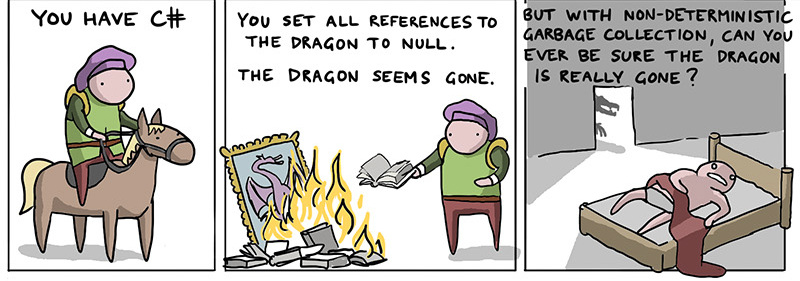 YOU HAVE C#
YOU SET ALL REFERENCES TO
THE DRAGON TO NULL.
THE DRAGON SEEMS GONE.
BUT WITH NON-DETERMINISTIC
GARBAGE COLLECTION, CAN YOU
EVER BE SURE THE DRAGON
IS REALLY GONE?